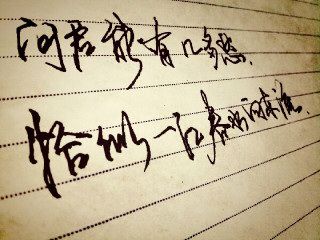 问君能有几多愁.
恰似一江春水向东流.